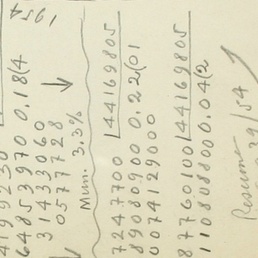 1954
64853970 0.18(4
31433060
0577728
Mun. 3.3%
7247700 44169805
89080900 0.22(01
0074129000
87760100 44169805
11080800 0.04(2
Resume
39/54